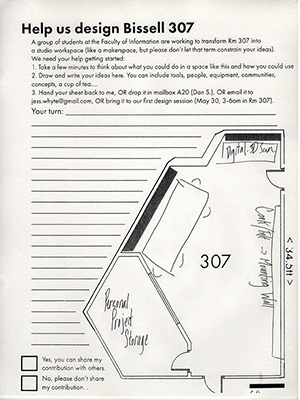 Help us design Bissell 307
A group of students at the Faculty of Information are working to transform Rm 307 into
a studio workspace (like a makerspace, but please don't let that term constrain your ideas).
We need your help getting started:
1. Take a few minutes to think about what you could do in a space like this and how you could use
2. Draw and write your ideas here. You can include tools, people, equipment, communities,
concepts, a cup of tea....
3. Hand your sheet back to me, OR drop it in mailbox A20 (Dan S.), OR email it to
jess.whyte@gmail.com, OR bring it to our first design session (May 30, 3-6pm in Rm 307).
Your turn:
Digital
307
< 34.5ft >
Wall
Personal
Project
Storage
Yes, you can share my
contribution with others.
No, please don't share
my contribution. .